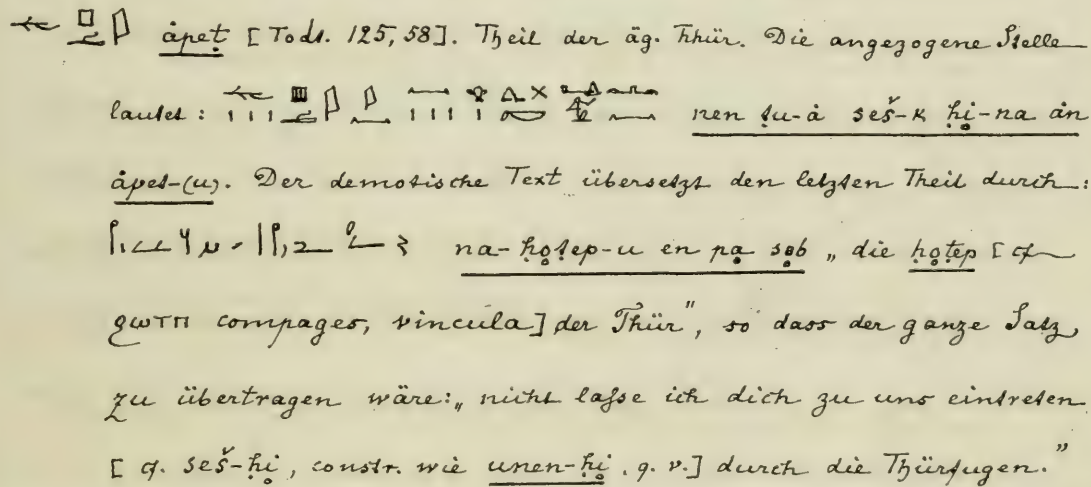 ȧpeṭ [Todt. 125, 58]. Theil der äg. Thür. Die angezogene Stelle
lautet: nen ṭu-ȧ seš-k ḥi-na ȧn
ȧpet-(u). Der demotische Text übersetzt den letzten Theil durch:
na-ḥoṭep-u en pa seb „die ḥoṭep [cf
ϩωτπ compages, vincula] der Thür", so dass der ganze Satz
zu übertragen wäre: „nicht laſse ich dich zu uns eintreten
[cf. seš-ḥi, constr. wie unen-ḥi, q. v.] durch die Thürfugen."